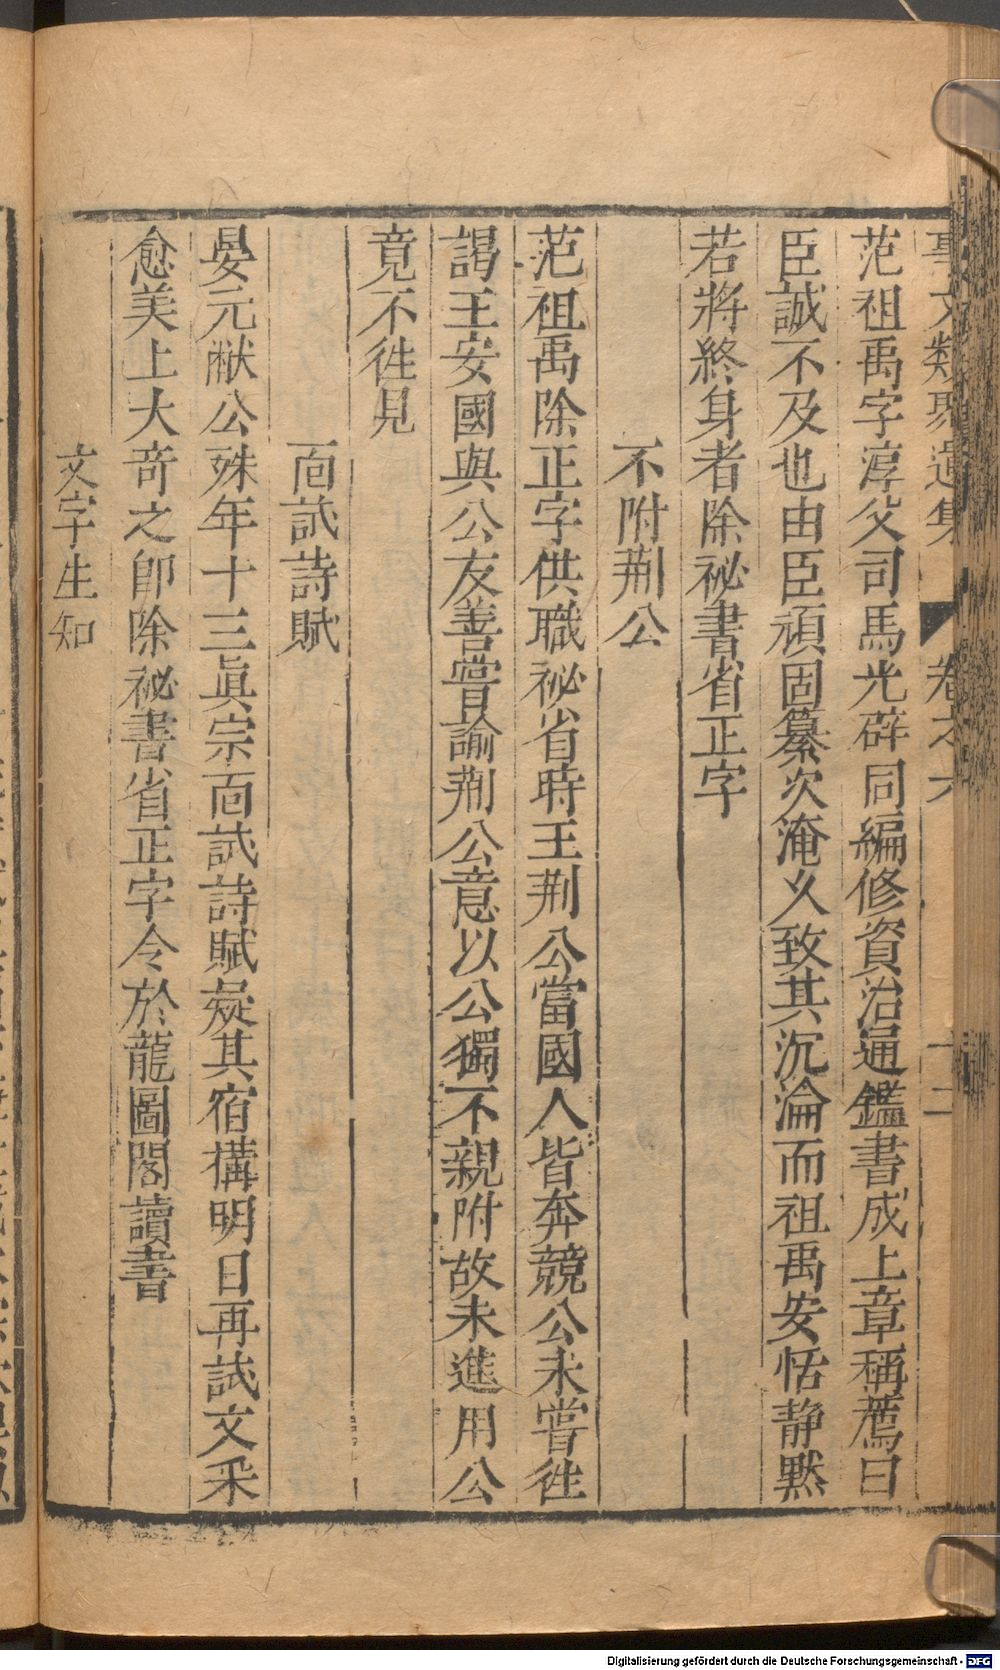 事文類聚遺集 卷之六 十二
范祖禹字淳父司馬光辟同編修資治通鑑書成上章稱薦曰
臣誠不及也由臣頑固纂次淹久致其沉淪而祖禹安恬静默
若將終身者除祕書省正字
不附荆公
范祖禹除正字供職祕省時王荆公當國人皆奔競公未嘗徃
謁王安國與公友善嘗諭荆公意以公獨不親附故未進用公
竟不徃見
面試詩賦
晏元獻公殊年十三眞宗面試詩賦疑其宿搆明日再試文采
愈美上大奇之卽除祕書省正字令於龍圖閣讀書
文字生知
Digitalisierung gefördert durch die Deutsche Forschungsgemeinschaft - DFG